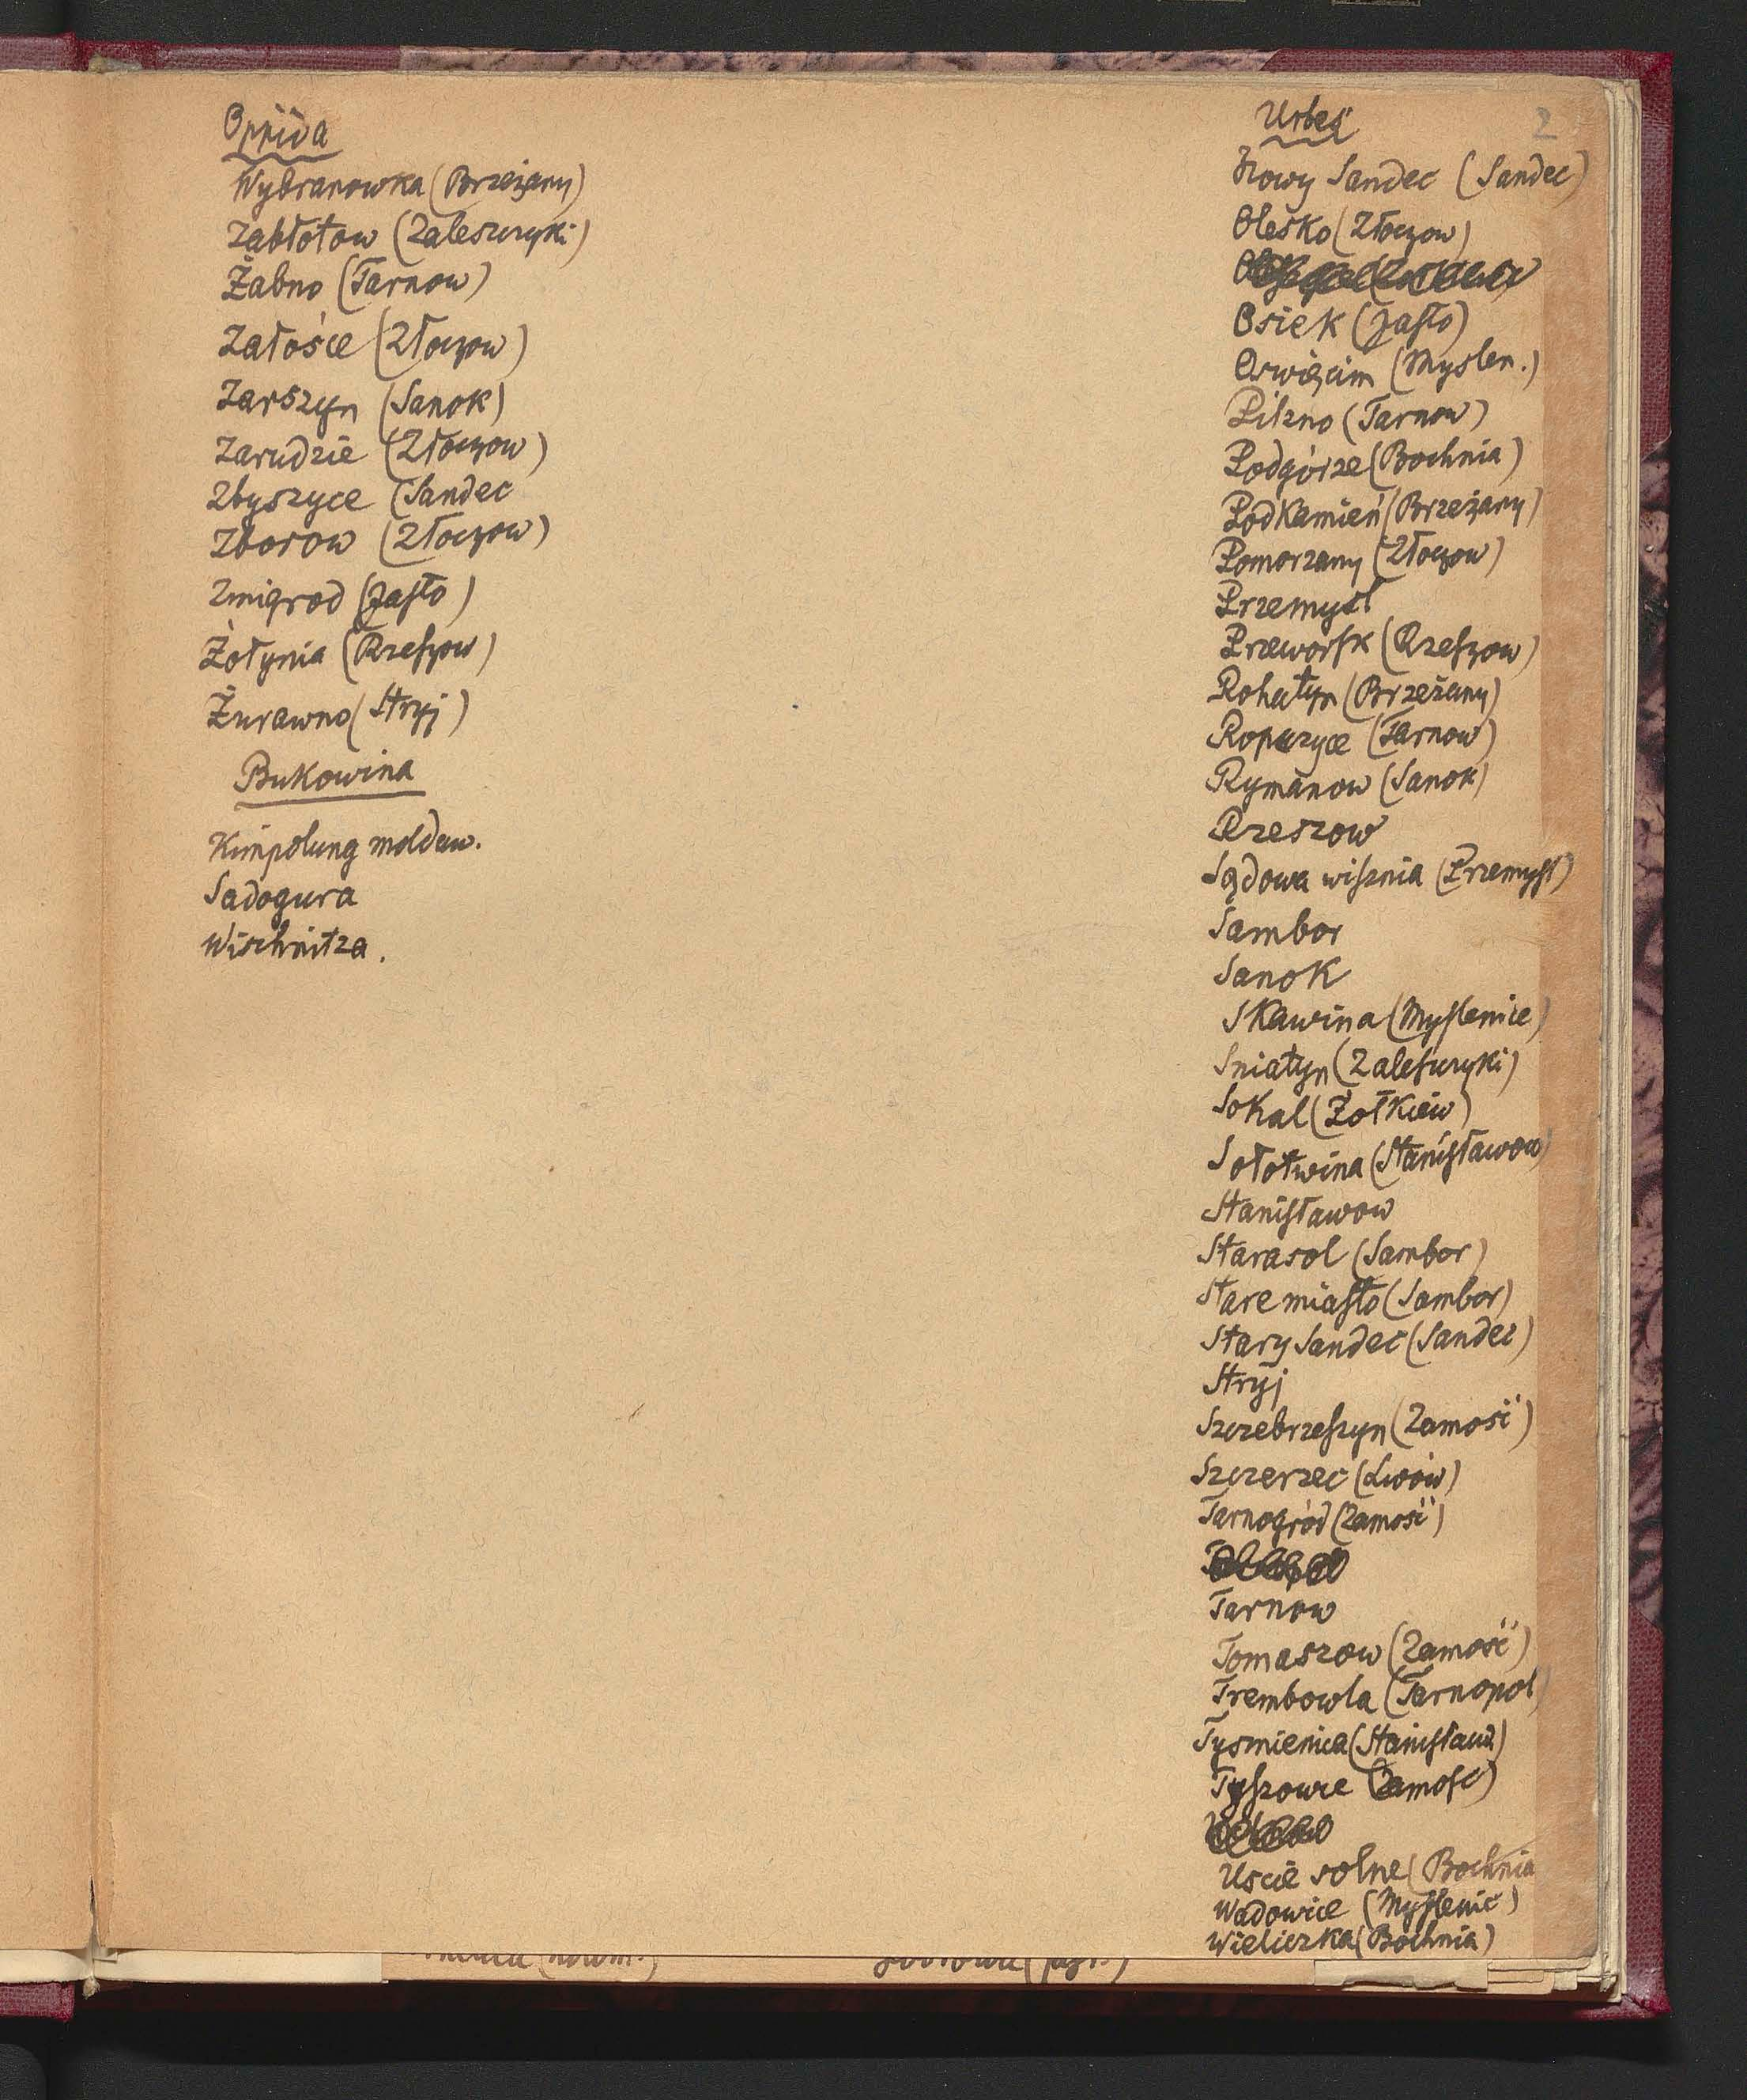 Oppida
Wybranowka (Brzeżany)
Zabłotow (Zaleszczyki)
Żabno (Tarnow)
Załośce (Złoczow)
Zarszyn (Sanok)
Zarudzie (Złoczow)
Zbyszyce (Sandec
Zborow (Złoczow)
Zmigrod (Jasło)
Żołynia (Rzeszow)
Żurawno (Stryj)
Bukowina
Kimpolung moldaw.
Sadogura
Wischnitza.
Urbes
2
Nowy Sandec (Sandec)
Olesko (Złoczow)
Osiek (Jasło)
Oswięcim (Myslen.)
Pilzno (Tarnow)
Podgórze (Bochnia)
Podkamień (Brzeżany)
Pomorzany (Złoczow)
Przemysl
Przeworsk (Rzeszow)
Rohatyn (Brzeżany)
Ropczyce (Tarnow)
Rymanow (Sanok)
Rzeszow
Sądowa wisznia (Przemysl)
Sambor
Sanok
Skawina (Myslenice)
Sniatyn (Zaleszczyki)
Sokal (Żołkiew)
Sołotwina (Stanisławow)
Stanisławow
Starasol (Sambor)
Stare miasto (Sambor)
Stary Sandec (Sandec)
Stryj
Szczebrzeszyn (Zamość)
Szczerzec (Lwów)
Tarnogród (Zamość)
Tarnow
Tomaszow (Zamość)
Trembowla (Tarnopol)
Tysmienica (Stanisławów)
Tyszowce (Zamosc)
Uscie solne (Bochnia
Wadowice (Myslenic)
Wieliczka (Bochnia)